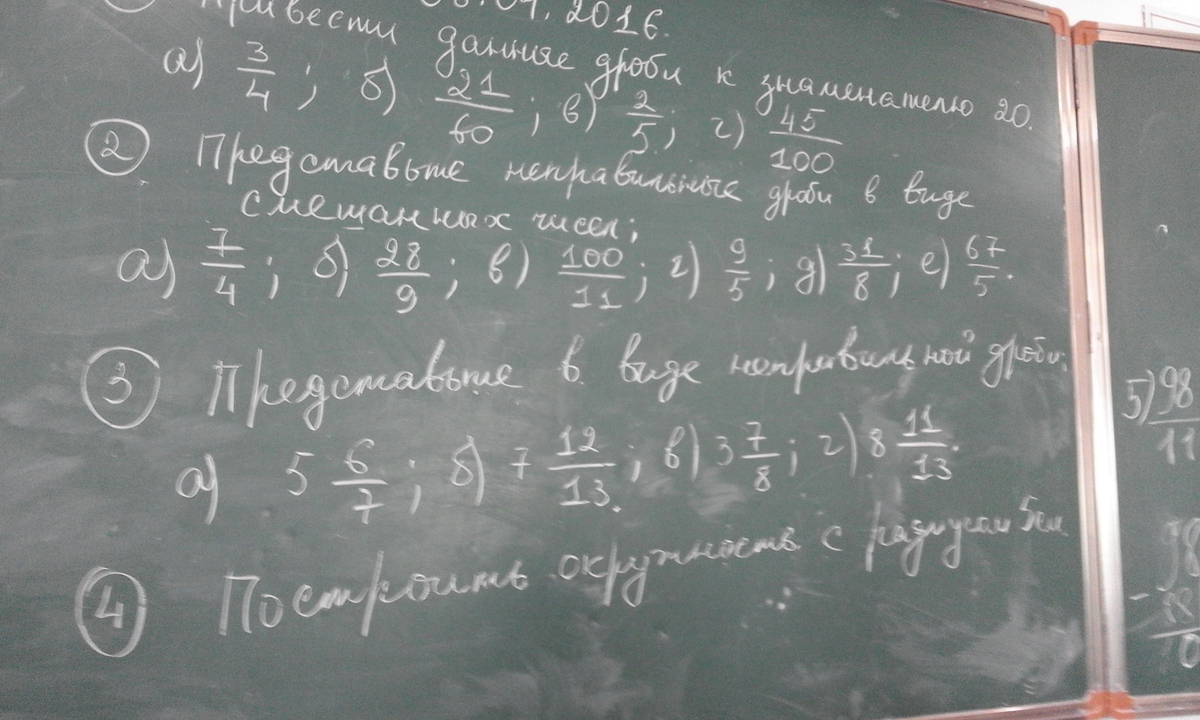 2016.
Привести данные дроби к знаменателю 20.
а) 3/4; б) 21/60; в) 2/5; г) 45/100
2 Представьте неправильные дроби в виде
смешанных чисел;
а) 7/4; б) 28/9; в) 100/11; г) 9/5; д) 31/8; е) 67/5.
3 Представьте в виде неправильной дроби:
а) 5 6/7; б) 7 12/13; в) 3 7/8; г) 8 11/13.
4 Построить окружность с радиусом 5см
5) 98/11